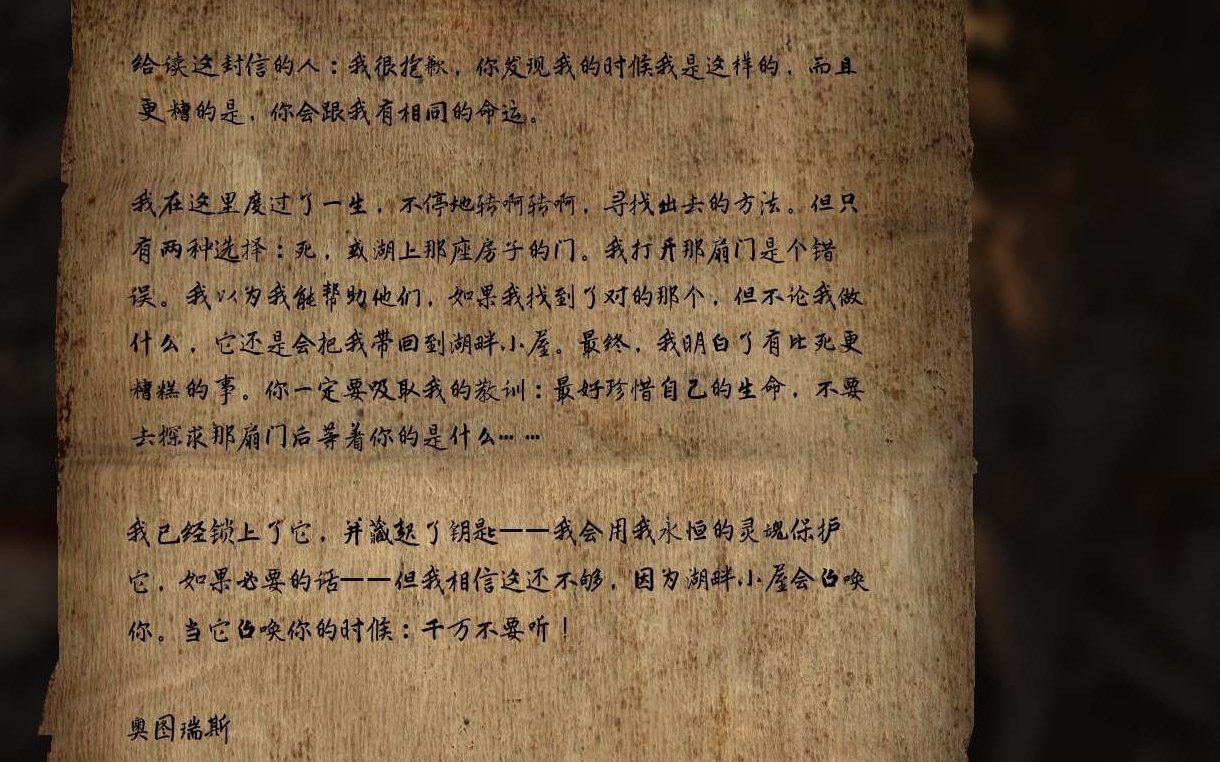 给读这封信的人：我很抱歉，你发现我的时候我是这样的，而且
更糟的是，你会跟我有相同的命运。
我在这里度过了一生，不停地转啊转啊，寻找出去的方法。但只
有两种选择：死，或湖上那座房子的门。我打开那扇门是个错
误。我以为我能帮助他们，如果我找到了对的那个，但不论我做
什么，它还是会把我带回到湖畔小屋。最终，我明白了有比死更
糟糕的事。你一定要吸取我的教训：最好珍惜自己的生命，不要
去探求那扇门后等着你的是什么……
我已经锁上了它，并藏起了钥匙——我会用我永恒的灵魂保护
它，如果必要的话——但我相信这还不够，因为湖畔小屋会召唤
你。当它召唤你的时候：千万不要听！
奥图瑞斯